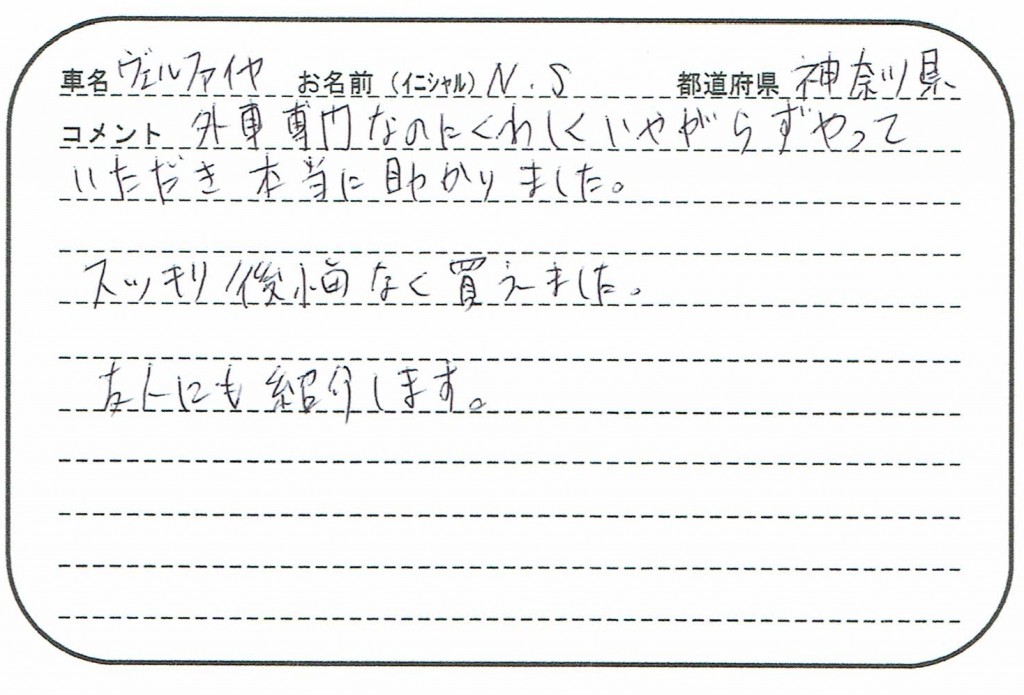 車名 ヴェルファイヤ お名前（イニシャル） N.S 都道府県 神奈川県
コメント 外車専門なのにくわしくいやがらずやって
いただき本当に助かりました。
スッキリ後悔なく買えました。
友人にも紹介します。